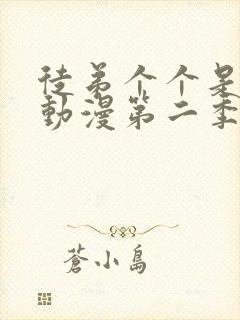 徒弟个个是
動漫第二季
蒼小島